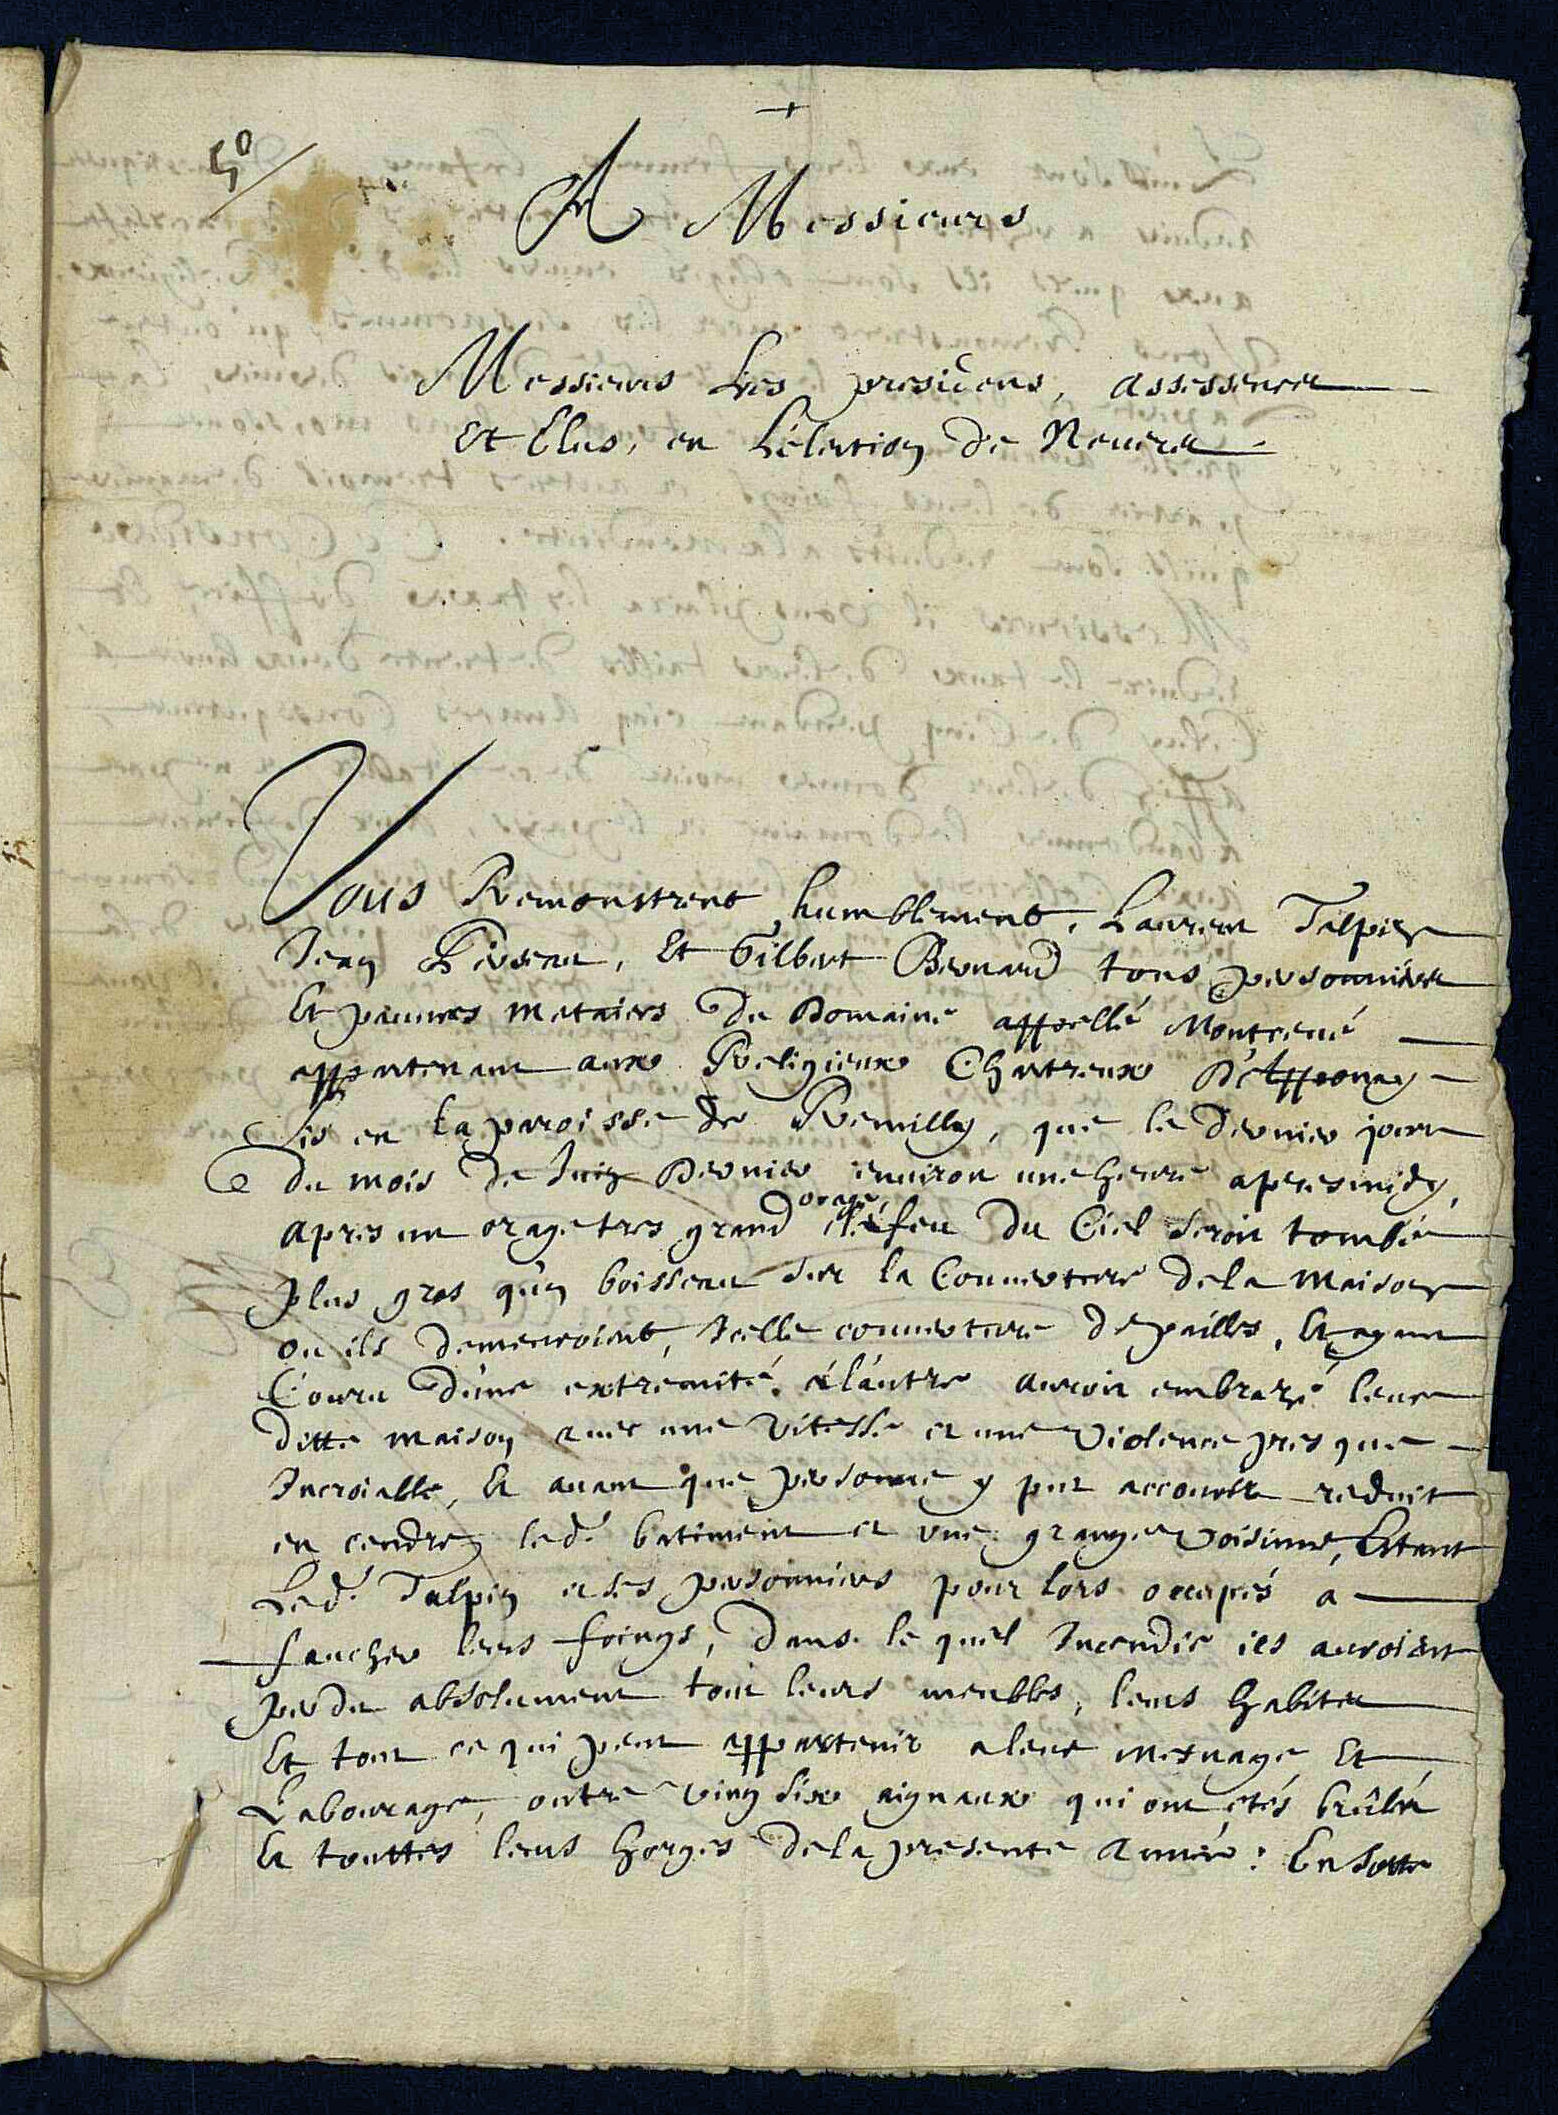 5º
A Messieurs
Messieurs Les presidens, assesseurs
Et Elus, en L'élection de Nevers
Vous Remonstrent humblement, Laurent Talpin
Jean Et Gilbert Bernard tous personniers
Et pauvres metaiers du Domaine appellé Montcené
appartenant aux Religieux Chartreux D'Apponay
sis en la paroisse de Remilly, que le dernier jour
du mois de Juin Dernier environ une heure apresmidy,
apres un orage tres grand le feu du Ciel seroit tombé
orage
plus gros qu'un boisseau sur la Couverture de la Maison
ou ils demeuroient, Icelle couverture de pailles, Et ayant
Couru d'une extremité à l'autre auroit embrazé leur
ditte maison avec une vitesse et une violence presque
Incroiable, Et avant que personne y put accourir reduit
en cendres led. batiment et une grange voisinne, Estant
Led. Talpin et ses personniers pour lors occupés à
faucher leurs foings, Dans lequel Incendie ils auroient
perdu absolument tout leurs meubles, leurs habits
Et tout ce qui peut appartenir a leur mesnage Et
Labourage, outre vingt six aigneaux qui ont etés brûlés
Et touttes leurs horges de la presente année: En sorte